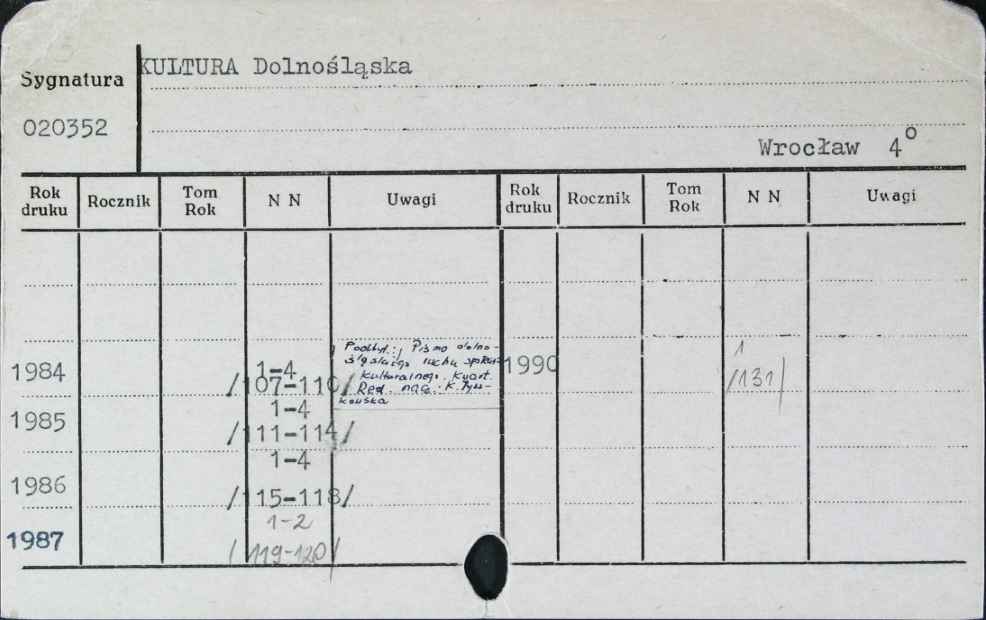 KULTURA Dolnośląska
Sygnatura
020352
Wrocław 4°
Rok druku Rocznik Tom Rok N N Uwagi Rok druku Rocznik Tom Rok N N Uwagi
1984 1-4 /107-110/
Podtyt.: Pismo dolno-
śląskiego ruchu
kulturalnego. Kwart.
Red. nacz. K. Tysz-
kowska
1990 1 /131/
1985 1-4 /111-114/
1986 1-4 /115-118/
1987 1-2 /119-120/